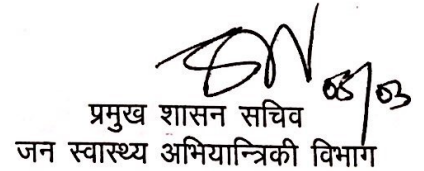 05/03
प्रमुख शासन सचिव
जन स्वास्थ्य अभियान्त्रिकी विभाग